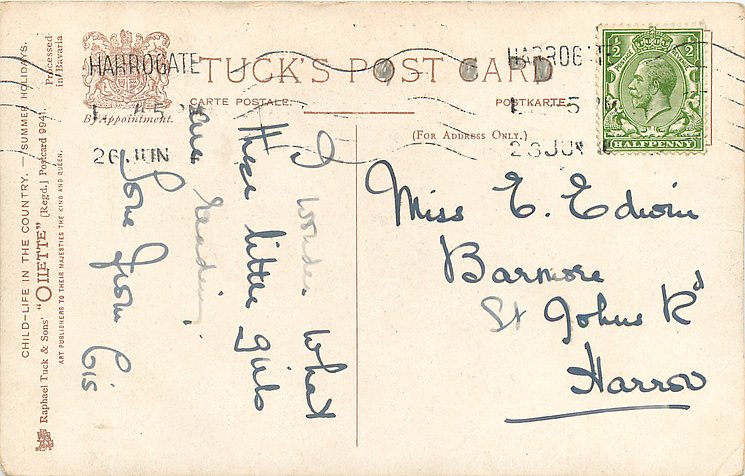 CHILD-LIFE IN THE COUNTRY. — /SUMMER HOLIDAYS.
Raphael Tuck & Sons' "OILETTE" [Regd.] Postcard 9941.
Processed in Bavaria
ART PUBLISHERS TO THEIR MAJESTIES THE KING AND QUEEN.
By Appointment.
TUCK'S POST CARD
CARTE POSTALE.
POSTKARTE.
(FOR ADDRESS ONLY.)
HARROGATE
26 JUN
HARROGATE
26 JUN
1/2
1/2
HALFPENNY
I wonder what
these little girls
are reading.
Love from Cis
Miss E. Edwin
Barmore
St Johns Rd
Harrow